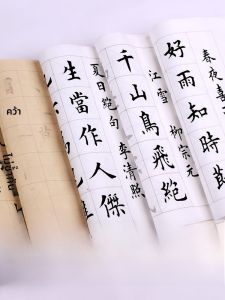 春夜喜
好雨知時節
江雪 柳宗元
千山鳥飛絕
夏日絕句 李清照
生當作人傑